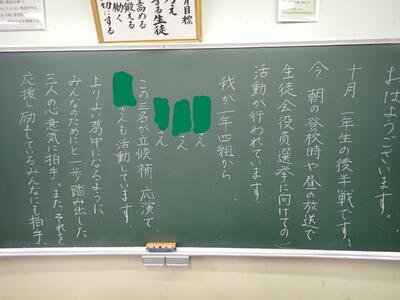 月目標
考え
する生徒
高める
鍛える
働く
切にする
おはようございます。
十月、一年生の後半戦です。
今、朝の登校時や昼の放送で
生徒会役員選挙に向けての
活動が行われています。
我が一年四組から
さん
さん
さん
この三名が立候補、応援で
さんも活動しています。
よりよい葛中になるように、
みんなのためにと一歩踏み出した
三人の心意気に拍手。また、それを
応援し励ましているみんなにも拍手。